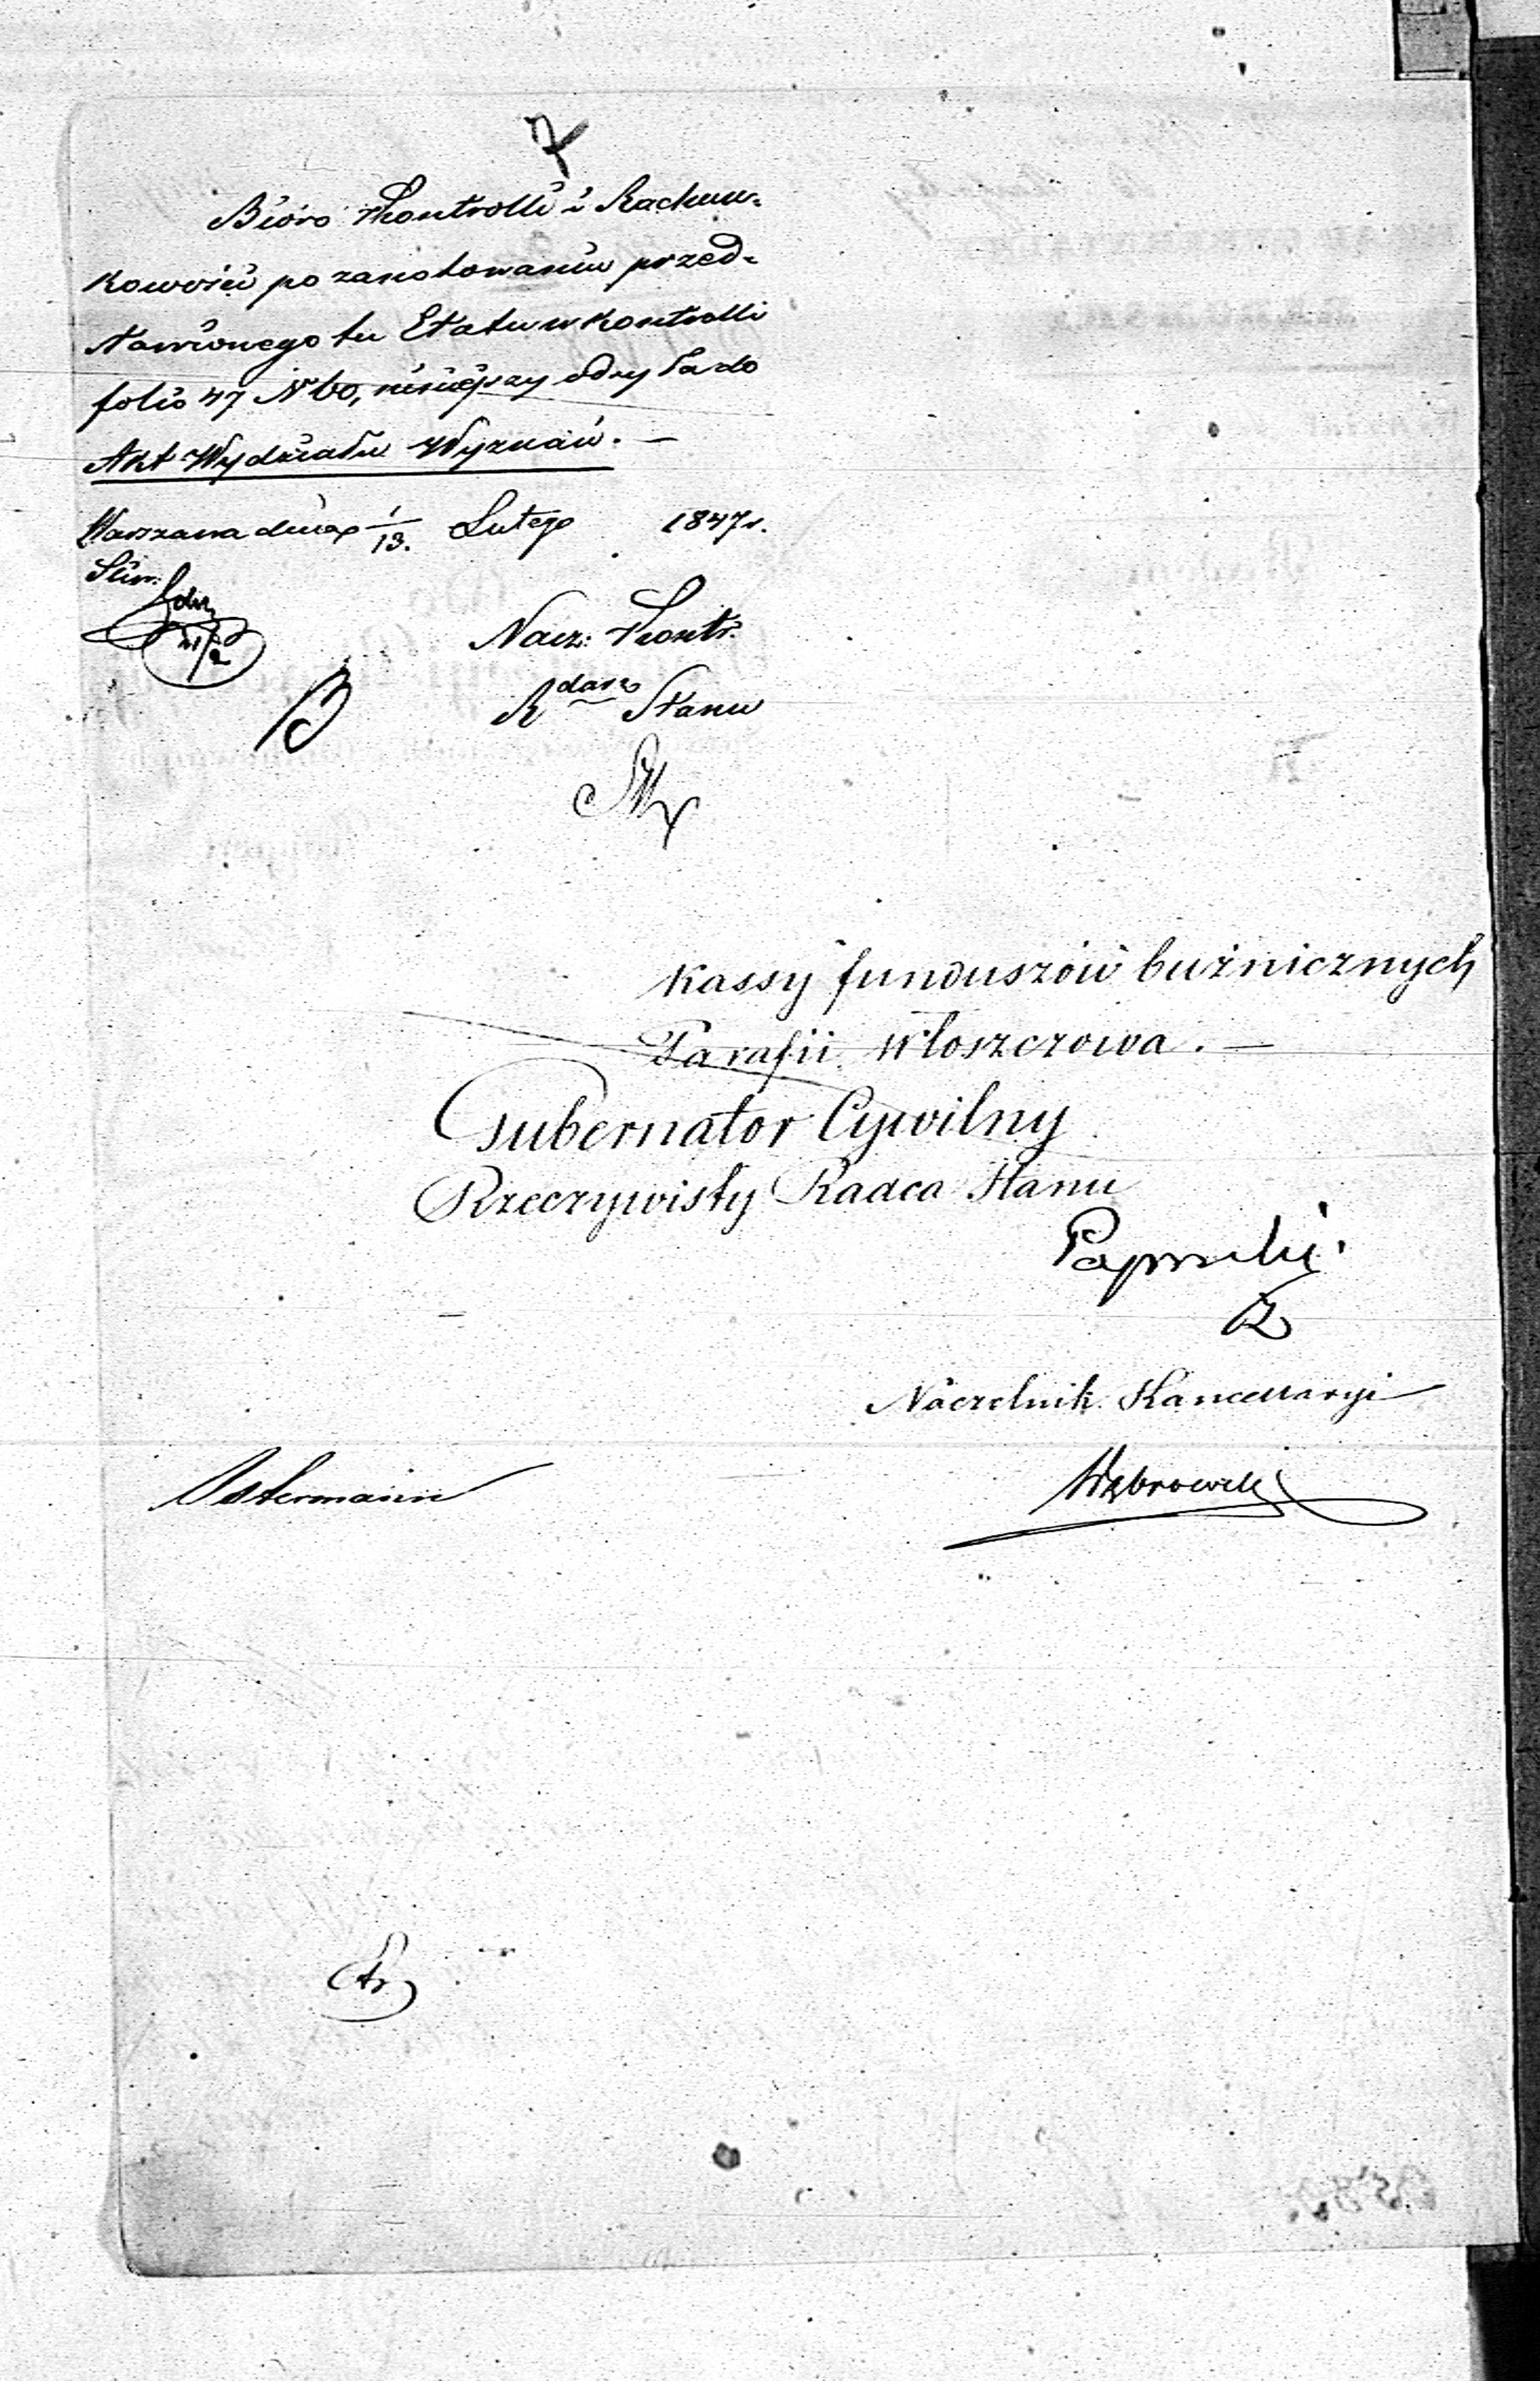 7
Bióro Kontrolli i Rachun-
kowości po zanotowaniu przed-
stawionego tu Etatu w kontrolli
folio 47 N 60, niniejszy odsyła do
Akt Wydziału Wyznań. —
Warszawa dnia 1/13. Lutego 1847 r.
Nacz: Kontr.
R dca Stanu
kassy funduszów bużnicznych
Parafii Włoszczowa. —
Gubernator Cywilny
Rzeczywisty Radca Stanu
Naczelnik Kancellaryi
Ostermann